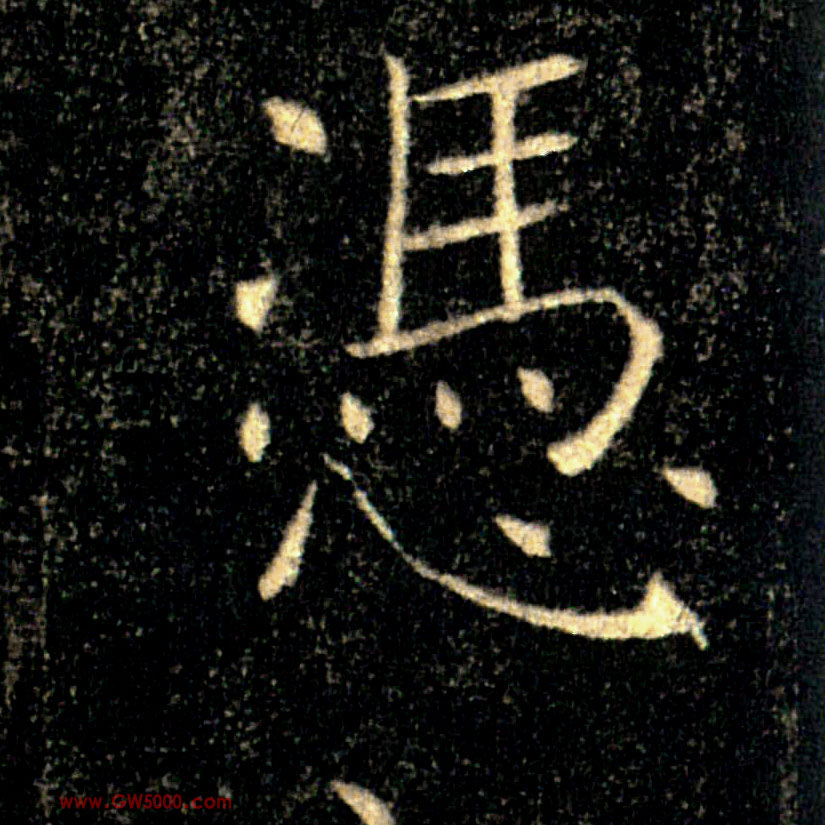 憑
www.GW5000.com